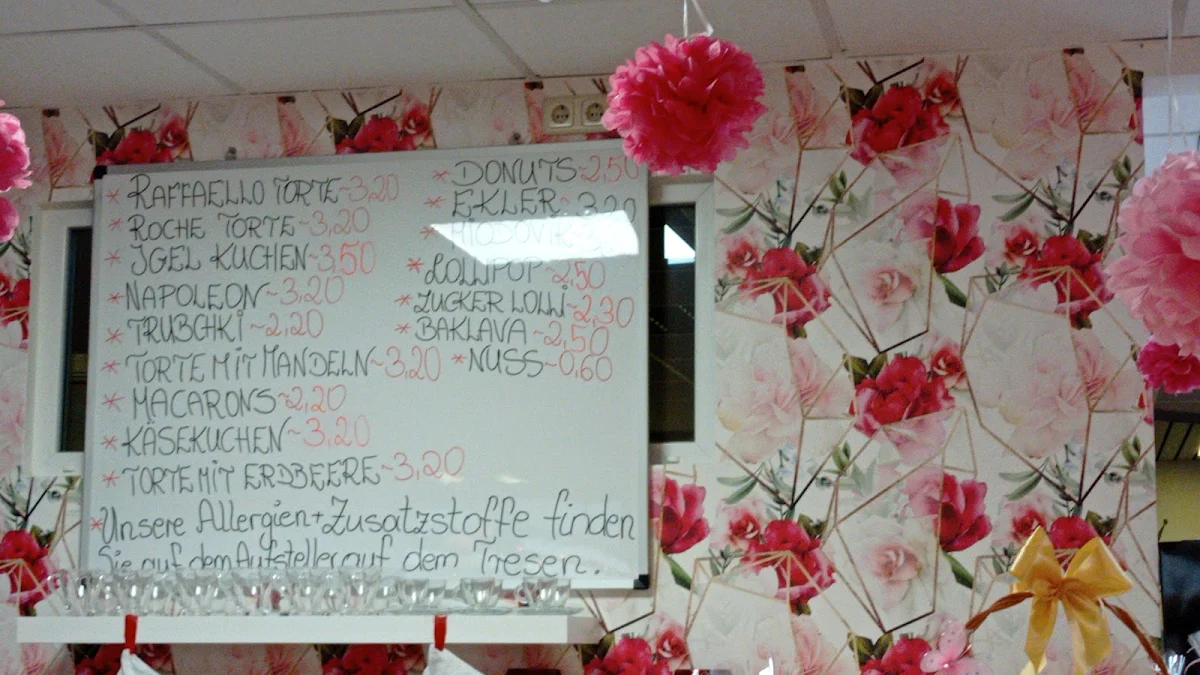 * RAFFAELLO TORTE~3,20
* ROCHE TORTE~3,20
* IGEL KUCHEN~3,50
* NAPOLEON~3,20
* TRUBCHKI~2,20
* TORTE MIT MANDELN~3,20
* MACARONS~2,20
* KÄSEKUCHEN~3,20
* TORTE MIT ERDBEERE~3,20
* DONUTS~2,50
* EKLER~3,20
* LOLLIPOP~2,50
* ZUCKER LOLLI~2,30
* BAKLAVA~2,50
* NUSS~0,60
* Unsere Allergien+Zusatzstoffe finden
Sie auf dem Aufsteller auf dem Tresen.